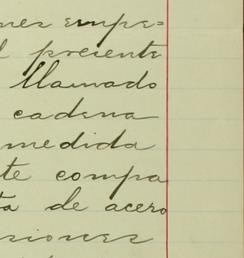 nes empe=
l presente
llamado
cadena
medida
te compa
ta de acero
siones